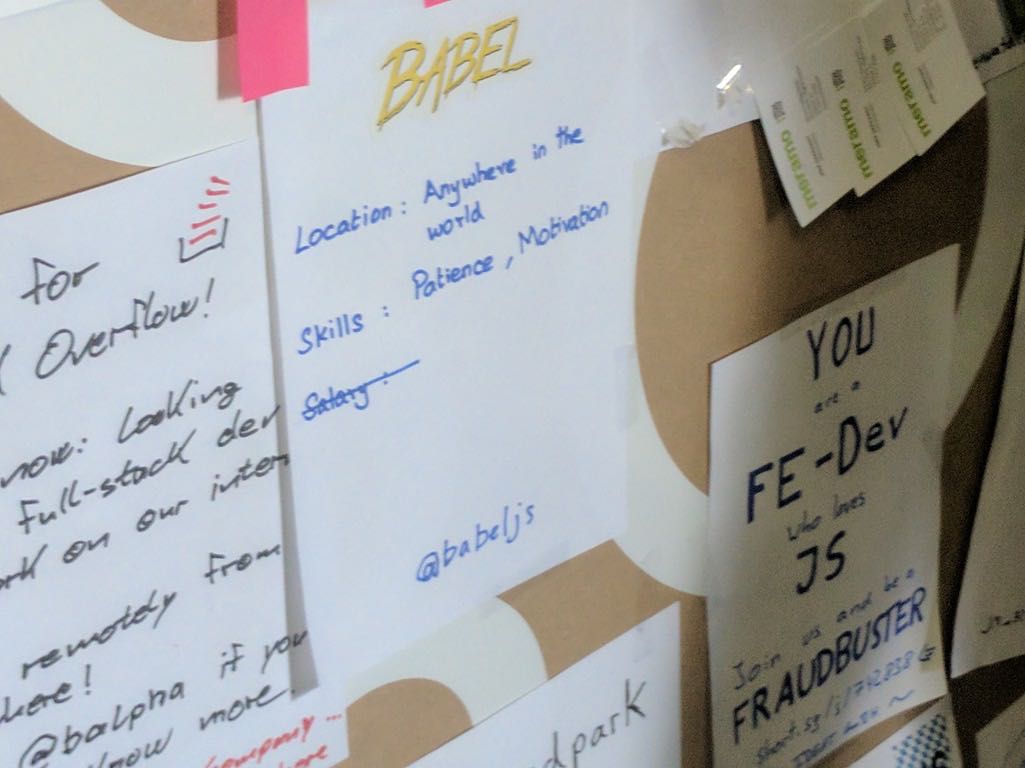 for
Overflow!
now: Looking
full-stack dev
on our inter
remotely from
here!
@balpha if you
know more.
company ...
here
BABEL
Location: Anywhere in the
world
Skills : Patience, Motivation
Salary :
@babeljs
meramo
meramo
meramo
YOU
are a
FE-Dev
who loves
JS
Join us and be a
FRAUDBUSTER
dpark